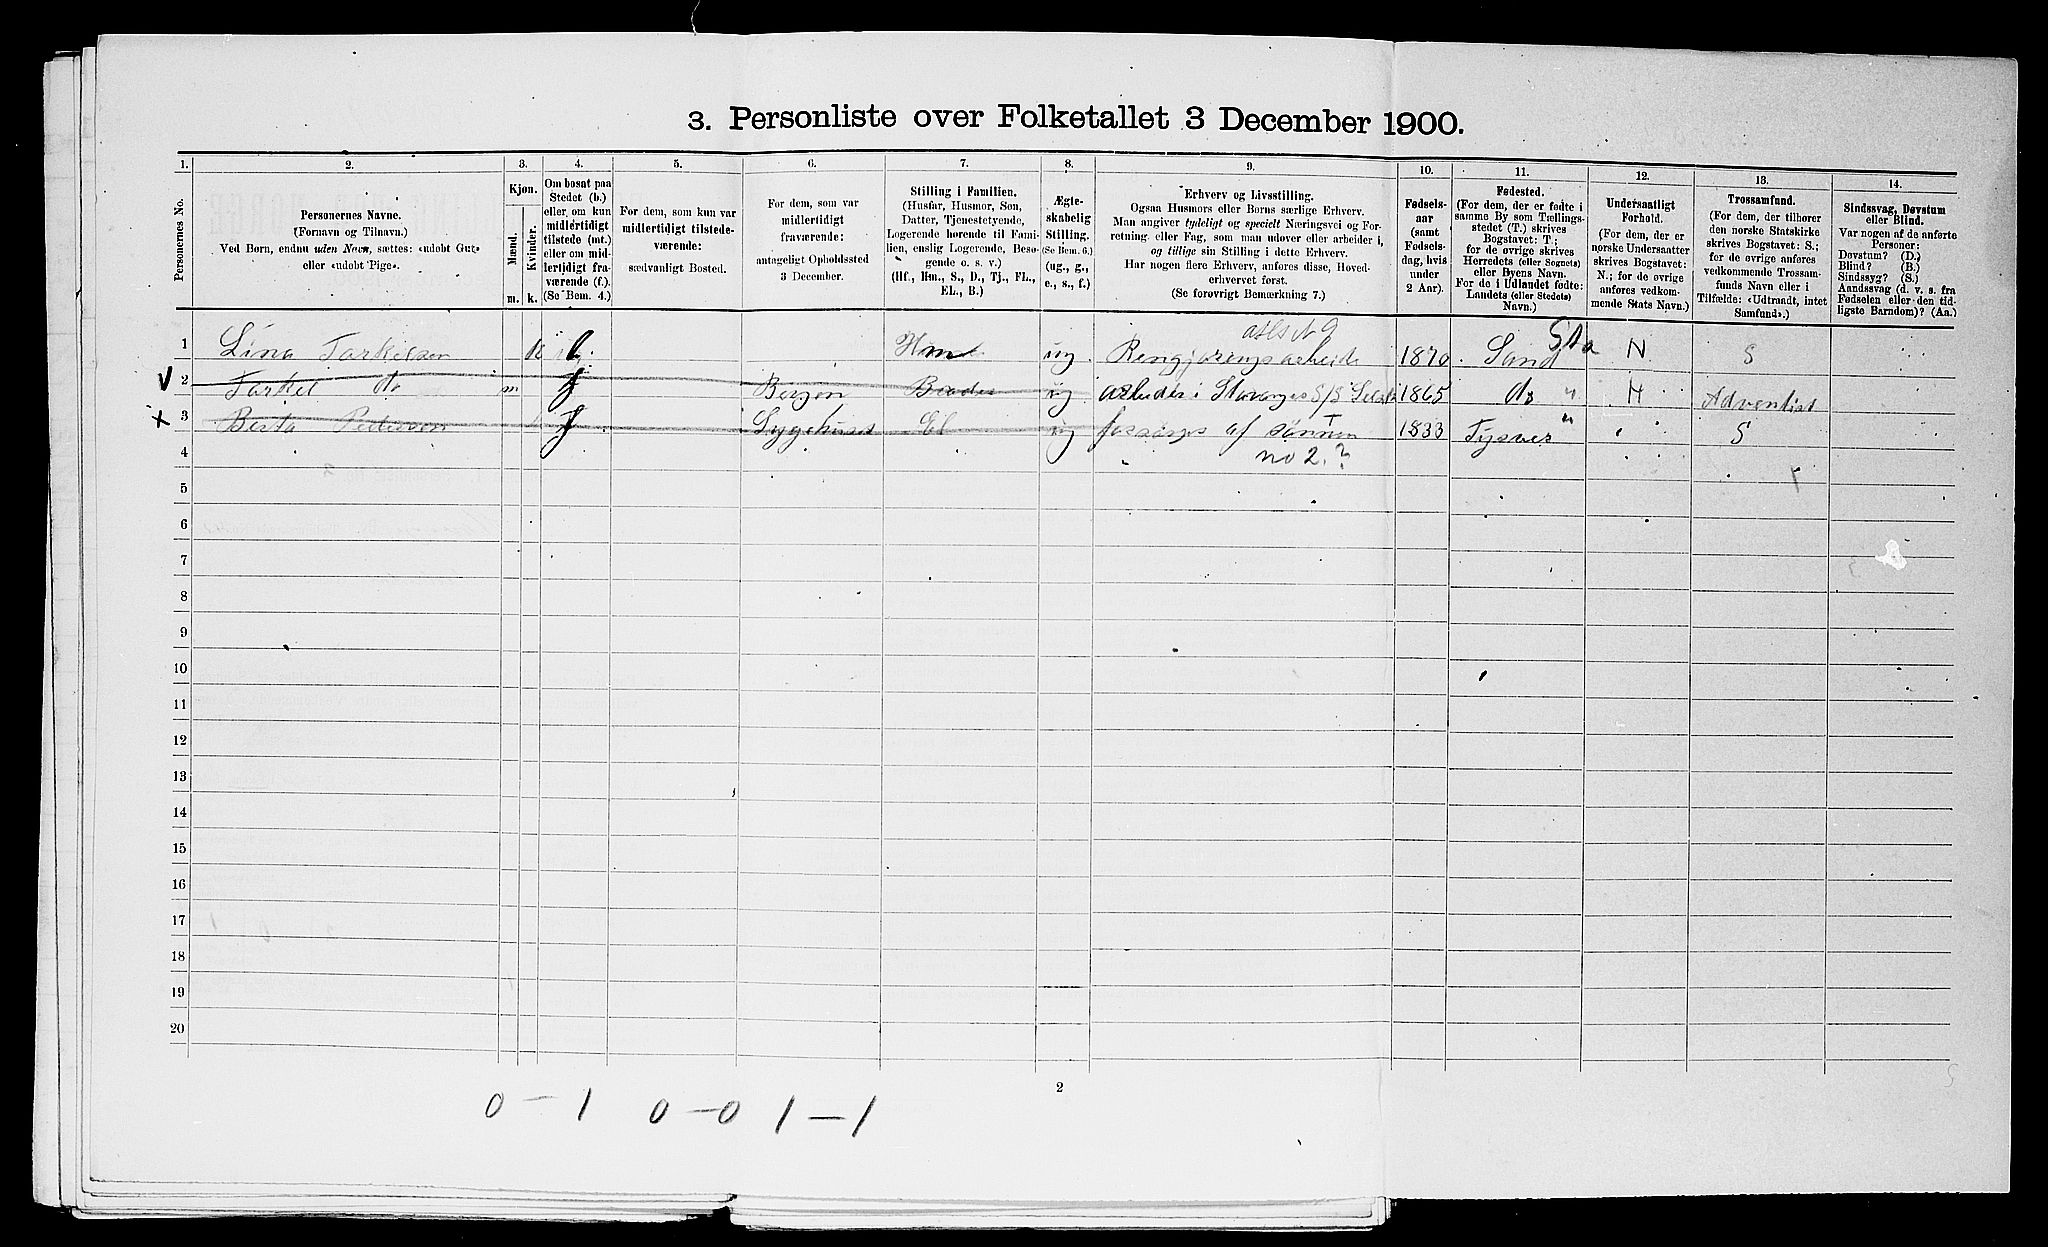 3. Personliste over Folketallet 3 December 1900.
1. 2. 3. 4. 5. 6. 7. 8. 9. 10. 11. 12. 13. 14.
Personernes No.
Personernes Navne.
(Fornavn og Tilnavn.)
Ved Børn, endnu uden Navn, sættes: «udøbt Gut»
eller «udøbt Pige».
Kjøn.
Mænd.
Kvinder.
m. k.
Om bosat paa
Stedet (b.)
eller om kun
midlertidigt
tilstede (mt.)
eller om mid-
lertidigt fra-
værende (f.).
(Se Bem. 4.)
For dem, som kun var
midlertidigt tilstede-
værende:
sædvanligt Bosted.
For dem, som var
midlertidigt
fraværende:
antageligt Opholdssted
3 December.
Stilling i Familien.
(Husfar, Husmor, Søn,
Datter, Tjenestetyende,
Logerende hørende til Fami-
lien, enslig Logerende, Besø-
gende o. s. v.)
(Hf., Hm., S., D., Tj., FL.,
EL., B.)
Ægte-
skabelig
Stilling.
(Se Bem. 6.)
(ug., g.,
e., s., f.)
Erhverv og Livsstilling.
Ogsaa Husmors eller Børns særlige Erhverv.
Man angiver tydeligt og specielt Næringsvei og For-
retning eller Fag, som man udøver eller arbeider i,
og tillige sin Stilling i dette Erhverv.
Har nogen flere Erhverv, anføres disse, Hoved-
erhvervet først.
(Se forøvrigt Bemærkning 7.)
Fødsels-
aar
(samt
Fødsels-
dag, hvis
under
2 Aar).
Fødested.
(For dem, der er fødte i
samme By som Tællings-
stedet (T.) skrives
Bogstavet: T.;
for de øvrige skrives
Herredets (eller Sognets)
eller Byens Navn.
For de i Udlandet fødte:
Landets (eller Stedets)
Navn.)
Undersaatligt
Forhold.
(For dem, der er
norske Undersaatter
skrives Bogstavet:
N.; for de øvrige
anføres vedkom-
mende Stats Navn.)
Trossamfund.
(For dem, der tilhører
den norske Statskirke
skrives Bogstavet: S.;
for de øvrige anføres
vedkommende Trossam-
funds Navn eller i
Tilfælde: «Udtraadt, intet
Samfund».)
Sindssvag, Døvstum
eller Blind.
Var nogen af de anførte
Personer:
Døvstum? (D.)
Blind? (B.)
Sindssyg? (S.)
Aandssvag (d. v. s. fra
Fødselen eller den tid-
ligste Barndom)? (Aa.)
1 Lina Tarkelsen k b. Hm ug Rengjøringsarbeide 1870. Sand Sta N S
2 Tarkel do m f Bergen Broder ug. arbeider i Stavanger S/S 1865 do " N Adventist
3 Berta Pedersen k f Sygehuset El ug forsørges af sønnen 1833 Tysver " S
4 no 2.?
5
6
7
8
9
10
11
12
13
14
15
16
17
18
19
20
2
0 – 1 0 – 0 1 – 1